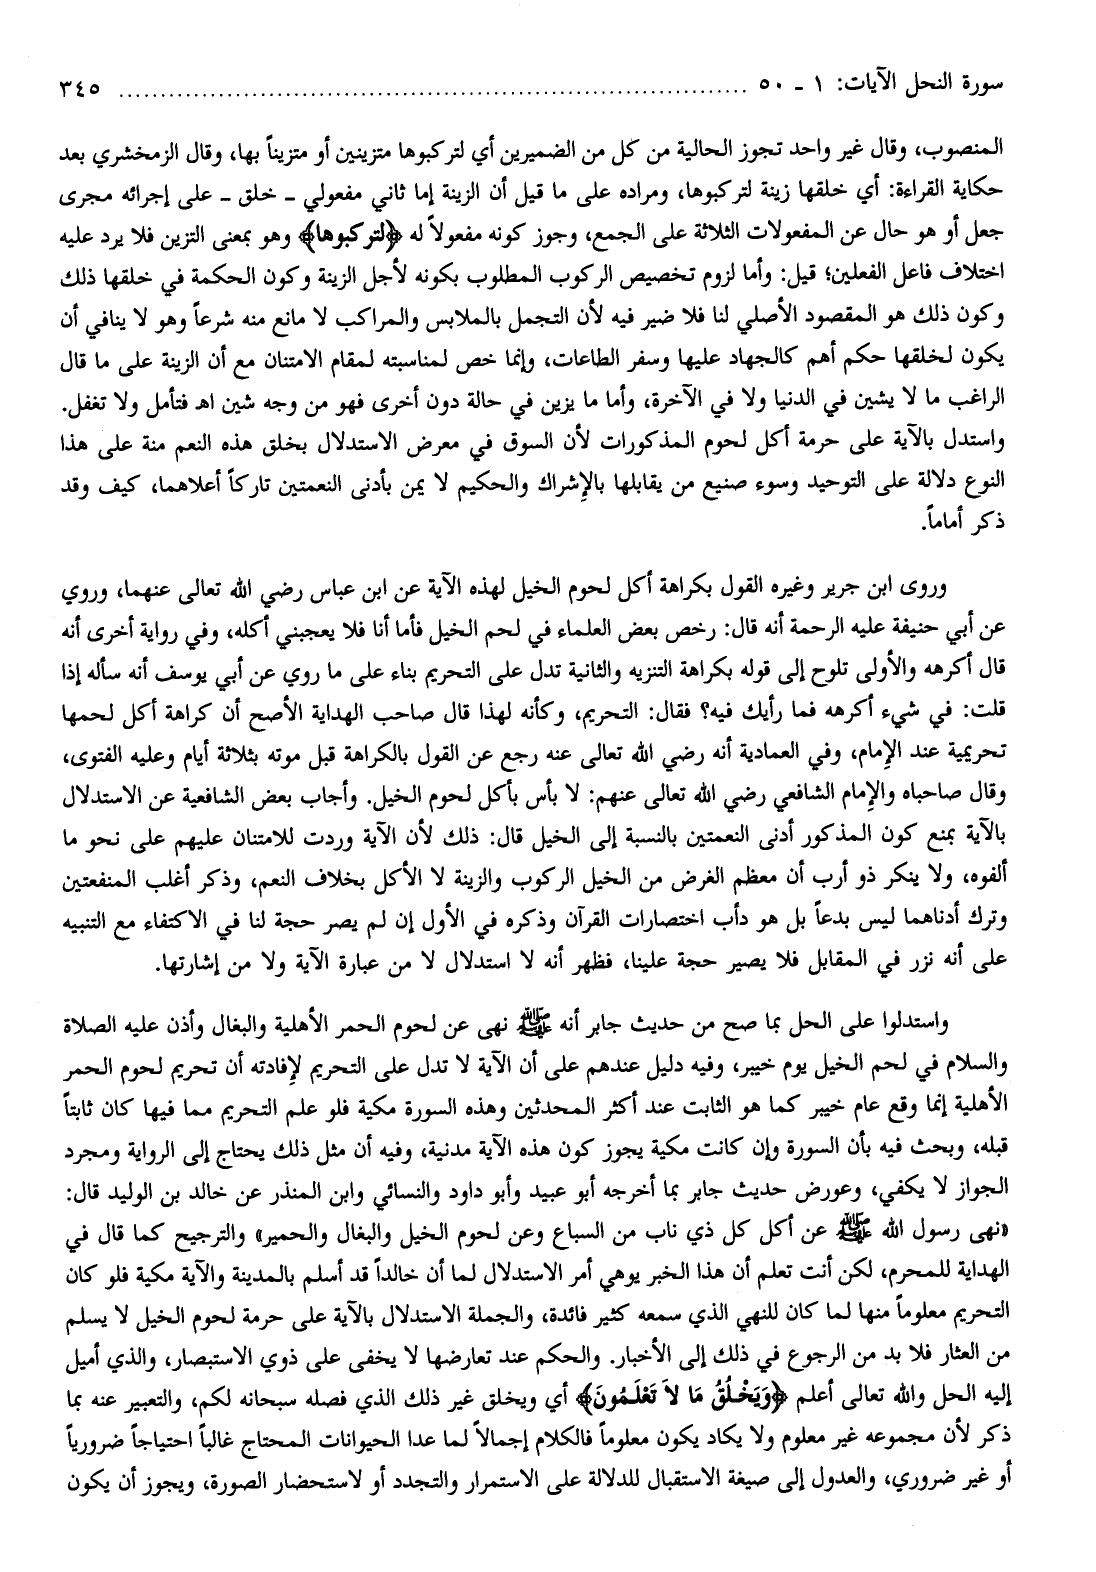 سورة النحل الآيات: ١ ـ ٥٠ .......................................................................... ٣٤٥
المنصوب، وقال غير واحد تجوز الحالية من كل من الضميرين أي لتركبوها متزينين أو متزيناً بها، وقال الزمخشري بعد
حكاية القراءة: أي خلقها زينة لتركبوها، ومراده على ما قيل أن الزينة إما ثاني مفعولي ـ خلق ـ على إجرائه مجرى
جعل أو هو حال عن المفعولات الثلاثة على الجمع، وجوز كونه مفعولاً له ﴿لتركبوها﴾ وهو بمعنى التزين فلا يرد عليه
اختلاف فاعل الفعلين؛ قيل: وأما لزوم تخصيص الركوب المطلوب بكونه لأجل الزينة وكون الحكمة في خلقها ذلك
وكون ذلك هو المقصود الأصلي لنا فلا ضير فيه لأن التجمل بالملابس والمراكب لا مانع منه شرعاً وهو لا ينافي أن
يكون لخلقها حكم أهم كالجهاد عليها وسفر الطاعات، وإنما خص لمناسبته لمقام الامتنان مع أن الزينة على ما قال
الراغب ما لا يشين في الدنيا ولا في الآخرة، وأما ما يزين في حالة دون أخرى فهو من وجه شين اهـ فتأمل ولا تغفل.
واستدل بالآية على حرمة أكل لحوم المذكورات لأن السوق في معرض الاستدلال بخلق هذه النعم منة على هذا
النوع دلالة على التوحيد وسوء صنيع من يقابلها بالإشراك والحكيم لا يمن بأدنى النعمتين تاركاً أعلاهما، كيف وقد
ذكر أماماً.
وروى ابن جرير وغيره القول بكراهة أكل لحوم الخيل لهذه الآية عن ابن عباس رضي الله تعالى عنهما، وروي
عن أبي حنيفة عليه الرحمة أنه قال: رخص بعض العلماء في لحم الخيل فأما أنا فلا يعجبني أكله، وفي رواية أخرى أنه
قال أكرهه والأولى تلوح إلى قوله بكراهة التنزيه والثانية تدل على التحريم بناء على ما روي عن أبي يوسف أنه سأله إذا
قلت: في شيء أكرهه فما رأيك فيه؟ فقال: التحريم، وكأنه لهذا قال صاحب الهداية الأصح أن كراهة أكل لحمها
تحريمية عند الإمام، وفي العمادية أنه رضي الله تعالى عنه رجع عن القول بالكراهة قبل موته بثلاثة أيام وعليه الفتوى،
وقال صاحباه والإمام الشافعي رضي الله تعالى عنهم: لا بأس بأكل لحوم الخيل. وأجاب بعض الشافعية عن الاستدلال
بالآية بمنع كون المذكور أدنى النعمتين بالنسبة إلى الخيل قال: ذلك لأن الآية وردت للامتنان عليهم على نحو ما
ألفوه، ولا ينكر ذو أرب أن معظم الغرض من الخيل الركوب والزينة لا الأكل بخلاف النعم، وذكر أغلب المنفعتين
وترك أدناهما ليس بدعاً بل هو دأب اختصارات القرآن وذكره في الأول إن لم يصر حجة لنا في الاكتفاء مع التنبيه
على أنه نزر في المقابل فلا يصير حجة علينا، فظهر أنه لا استدلال لا من عبارة الآية ولا من إشارتها.
واستدلوا على الحل بما صح من حديث جابر أنه ﷺ نهى عن لحوم الحمر الأهلية والبغال وأذن عليه الصلاة
والسلام في لحم الخيل يوم خيبر، وفيه دليل عندهم على أن الآية لا تدل على التحريم لإفادته أن تحريم لحوم الحمر
الأهلية إنما وقع عام خيبر كما هو الثابت عند أكثر المحدثين وهذه السورة مكية فلو علم التحريم مما فيها كان ثابتاً
قبله، وبحث فيه بأن السورة وإن كانت مكية يجوز كون هذه الآية مدنية، وفيه أن مثل ذلك يحتاج إلى الرواية ومجرد
الجواز لا يكفي، وعورض حديث جابر بما أخرجه أبو عبيد وأبو داود والنسائي وابن المنذر عن خالد بن الوليد قال:
«نهى رسول الله ﷺ عن أكل كل ذي ناب من السباع وعن لحوم الخيل والبغال والحمير» والترجيح كما قال في
الهداية للمحرم، لكن أنت تعلم أن هذا الخبر يوهي أمر الاستدلال لما أن خالداً قد أسلم بالمدينة والآية مكية فلو كان
التحريم معلوماً منها لما كان للنهي الذي سمعه كثير فائدة، والجملة الاستدلال بالآية على حرمة لحوم الخيل لا يسلم
من العثار فلا بد من الرجوع في ذلك إلى الأخبار. والحكم عند تعارضها لا يخفى على ذوي الاستبصار، والذي أميل
إليه الحل والله تعالى أعلم ﴿وَيَخْلُقُ مَا لاَ تَعْلَمُونَ﴾ أي ويخلق غير ذلك الذي فصله سبحانه لكم، والتعبير عنه بما
ذكر لأن مجموعه غير معلوم ولا يكاد يكون معلوماً فالكلام إجمالاً لما عدا الحيوانات المحتاج غالباً احتياجاً ضرورياً
أو غير ضروري، والعدول إلى صيغة الاستقبال للدلالة على الاستمرار والتجدد أو لاستحضار الصورة، ويجوز أن يكون